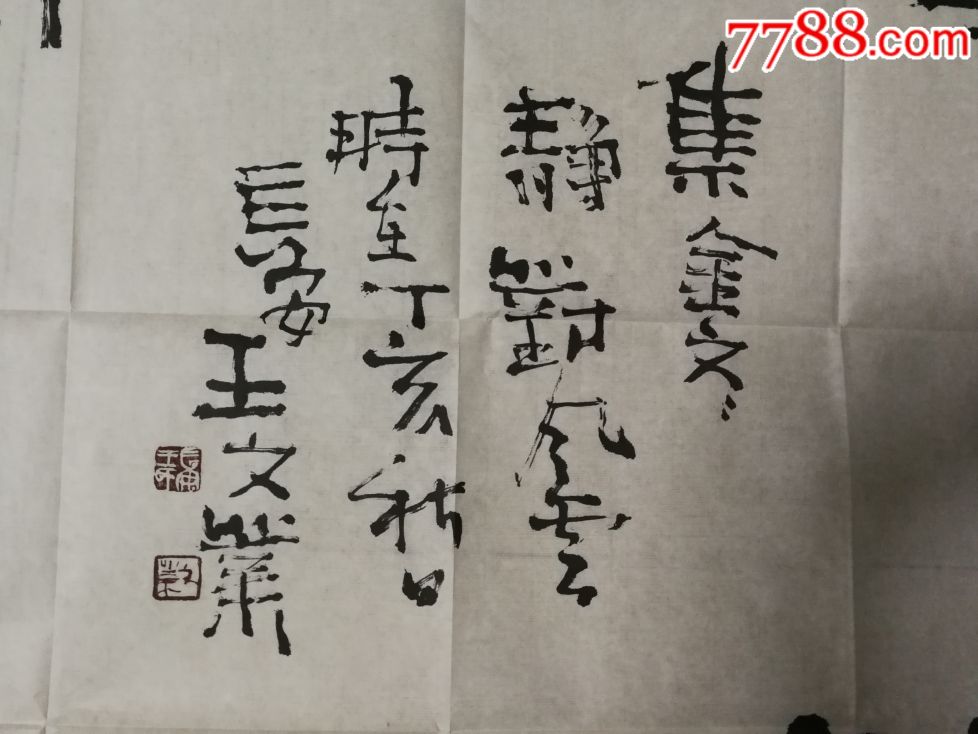 7788.com
集金文
靜對風雲
時在丁亥秋日
長安王文業